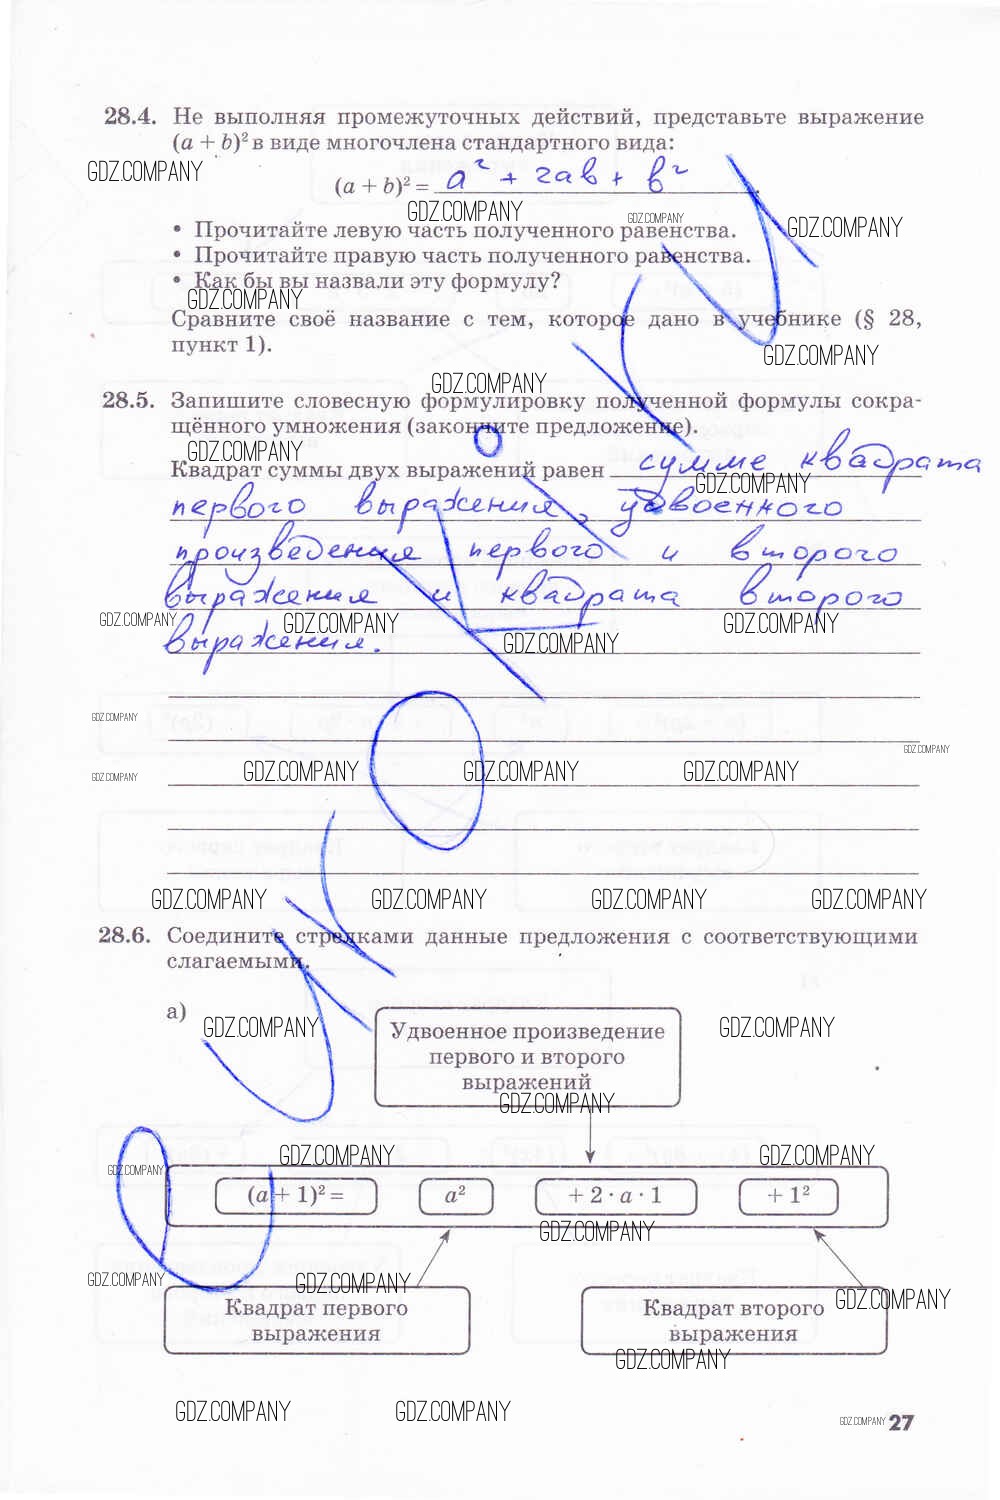 28.4. Не выполняя промежуточных действий, представьте выражение
(a + b)² в виде многочлена стандартного вида:
GDZ.COMPANY
(a + b)² = a² + 2ab + b².
GDZ.COMPANY GDZ.COMPANY GDZ.COMPANY
• Прочитайте левую часть полученного равенства.
• Прочитайте правую часть полученного равенства.
• Как бы вы назвали эту формулу?
GDZ.COMPANY
Сравните своё название с тем, которое дано в учебнике (§ 28,
пункт 1).
GDZ.COMPANY
GDZ.COMPANY
28.5. Запишите словесную формулировку полученной формулы сокра-
щённого умножения (закончите предложение).
GDZ.COMPANY
Квадрат суммы двух выражений равен сумме квадрата
GDZ.COMPANY
первого выражения, удвоенного
произведения первого и второго
выражения и квадрата второго
GDZ.COMPANY GDZ.COMPANY GDZ.COMPANY
выражения.
GDZ.COMPANY
GDZ.COMPANY
GDZ.COMPANY
GDZ.COMPANY GDZ.COMPANY GDZ.COMPANY GDZ.COMPANY
GDZ.COMPANY GDZ.COMPANY GDZ.COMPANY GDZ.COMPANY
28.6. Соедините стрелками данные предложения с соответствующими
слагаемыми.
а)
GDZ.COMPANY GDZ.COMPANY
Удвоенное произведение
первого и второго
выражений
GDZ.COMPANY
GDZ.COMPANY GDZ.COMPANY GDZ.COMPANY
(a + 1)² = a² + 2 · a · 1 + 1²
GDZ.COMPANY
GDZ.COMPANY GDZ.COMPANY GDZ.COMPANY
Квадрат первого
выражения
Квадрат второго
выражения
GDZ.COMPANY
GDZ.COMPANY GDZ.COMPANY GDZ.COMPANY 27